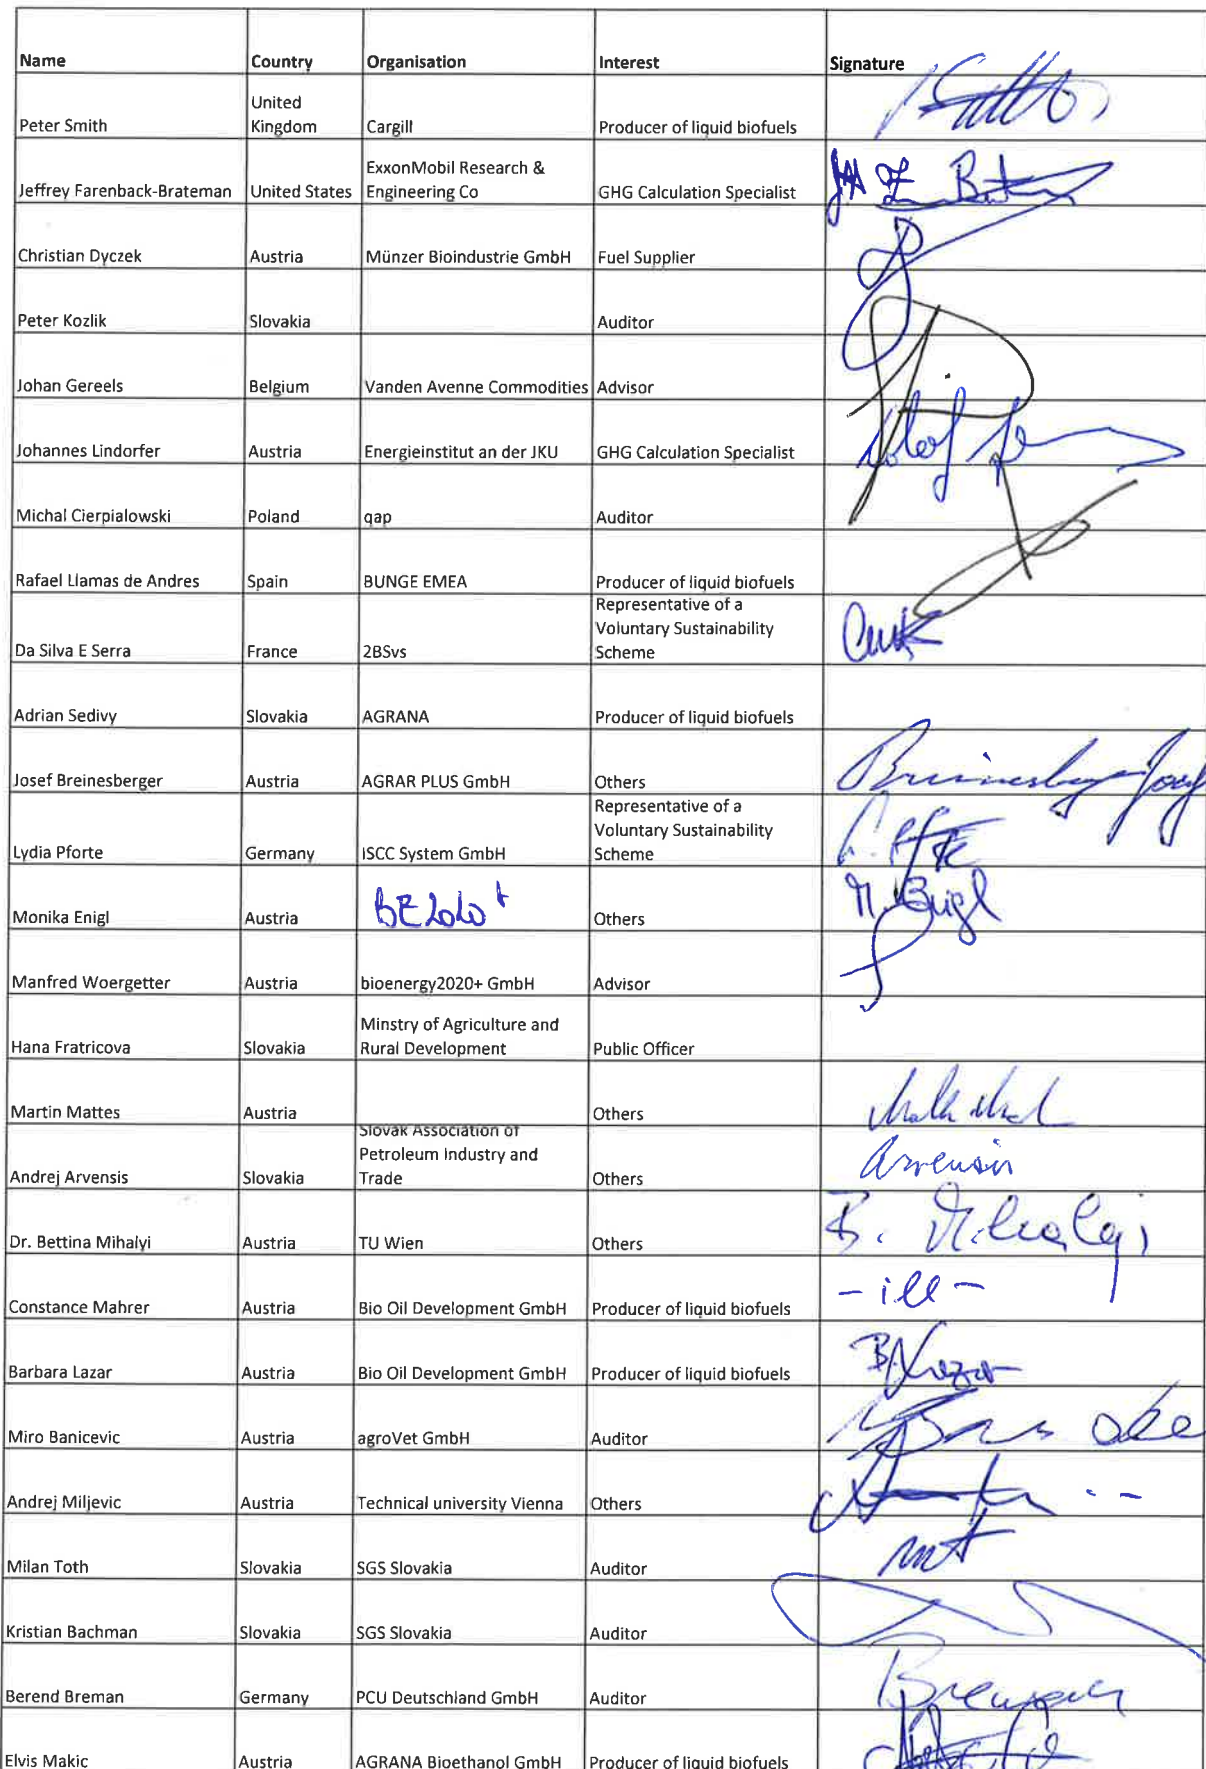 Name Country Organisation Interest Signature
United
Peter Smith Kingdom Cargill Producer of liquid biofuels
ExxonMobil Research &
Jeffrey Farenback-Brateman United States Engineering Co GHG Calculation Specialist
Christian Dyczek Austria Münzer Bioindustrie GmbH Fuel Supplier
Peter Kozlik Slovakia Auditor
Johan Gereels Belgium Vanden Avenne Commodities Advisor
Johannes Lindorfer Austria Energieinstitut an der JKU GHG Calculation Specialist
Michal Cierpialowski Poland qap Auditor
Rafael Llamas de Andres Spain BUNGE EMEA Producer of liquid biofuels
Representative of a
Voluntary Sustainability
Da Silva E Serra France 2BSvs Scheme
Adrian Sedivy Slovakia AGRANA Producer of liquid biofuels
Josef Breinesberger Austria AGRAR PLUS GmbH Others Breinesberger Josef
Representative of a
Voluntary Sustainability
Lydia Pforte Germany ISCC System GmbH Scheme
Monika Enigl Austria BE2020+ Others M. Enigl
Manfred Woergetter Austria bioenergy2020+ GmbH Advisor
Minstry of Agriculture and
Hana Fratricova Slovakia Rural Development Public Officer
Martin Mattes Austria Others
Slovak Association of
Petroleum Industry and
Andrej Arvensis Slovakia Trade Others Arvensis
Dr. Bettina Mihalyi Austria TU Wien Others B. Mihalyi
Constance Mahrer Austria Bio Oil Development GmbH Producer of liquid biofuels - ill -
Barbara Lazar Austria Bio Oil Development GmbH Producer of liquid biofuels B. Lazar
Miro Banicevic Austria agroVet GmbH Auditor
Andrej Miljevic Austria Technical university Vienna Others
Milan Toth Slovakia SGS Slovakia Auditor
Kristian Bachman Slovakia SGS Slovakia Auditor
Berend Breman Germany PCU Deutschland GmbH Auditor Breman
Elvis Makic Austria AGRANA Bioethanol GmbH Producer of liquid biofuels